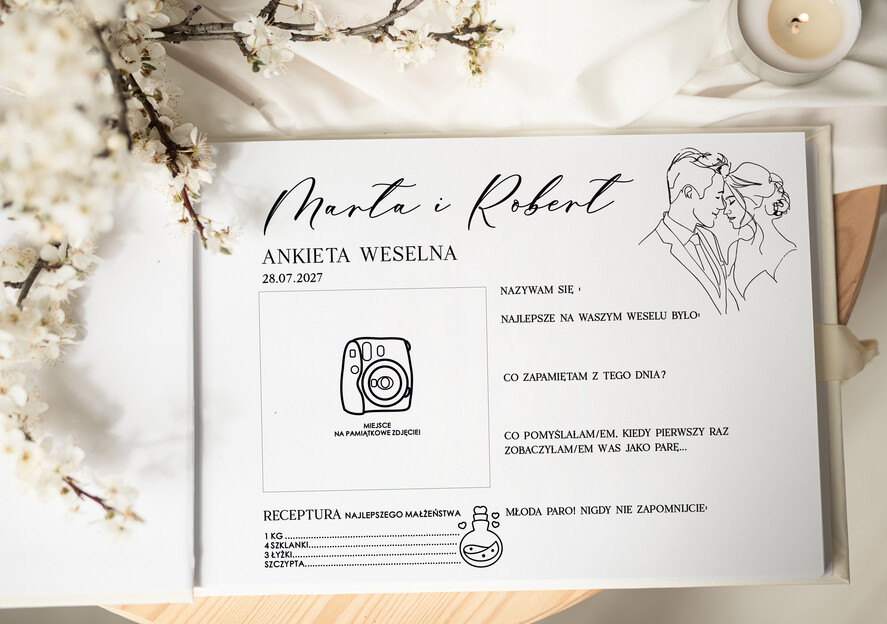 Marta i Robert
ANKIETA WESELNA
28.07.2027
MIEJSCE
NA PAMIĄTKOWE ZDJĘCIE!
NAZYWAM SIĘ :
NAJLEPSZE NA WASZYM WESELU BYŁO:
CO ZAPAMIĘTAM Z TEGO DNIA?
CO POMYŚLAŁAM/EM, KIEDY PIERWSZY RAZ
ZOBACZYŁAM/EM WAS JAKO PARĘ...
MŁODA PARO! NIGDY NIE ZAPOMNIJCIE:
RECEPTURA NAJLEPSZEGO MAŁŻEŃSTWA
1 KG ....................................................
4 SZKLANKI.............................................
3 ŁYŻKI..................................................
SZCZYPTA...............................................